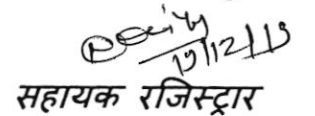 19/12/19
सहायक रजिस्ट्रार